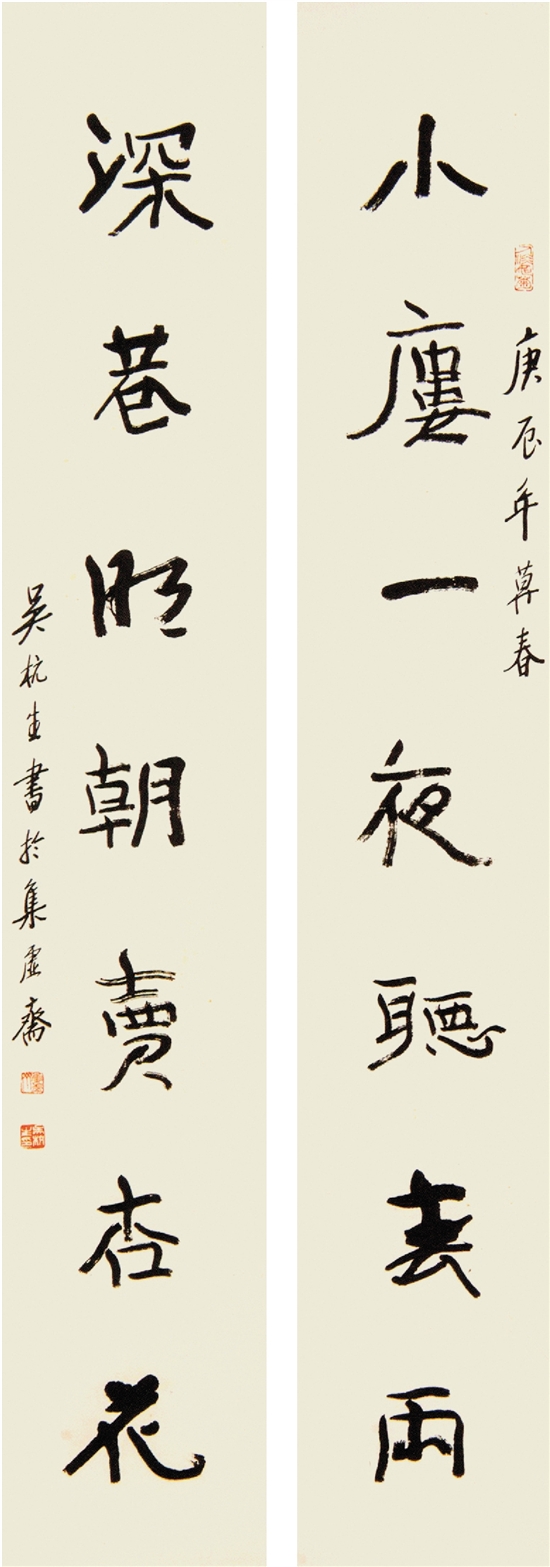 庚辰年莫春
小廔一夜聽春雨
深巷明朝賣杏花
吴杭生書於集虛齋